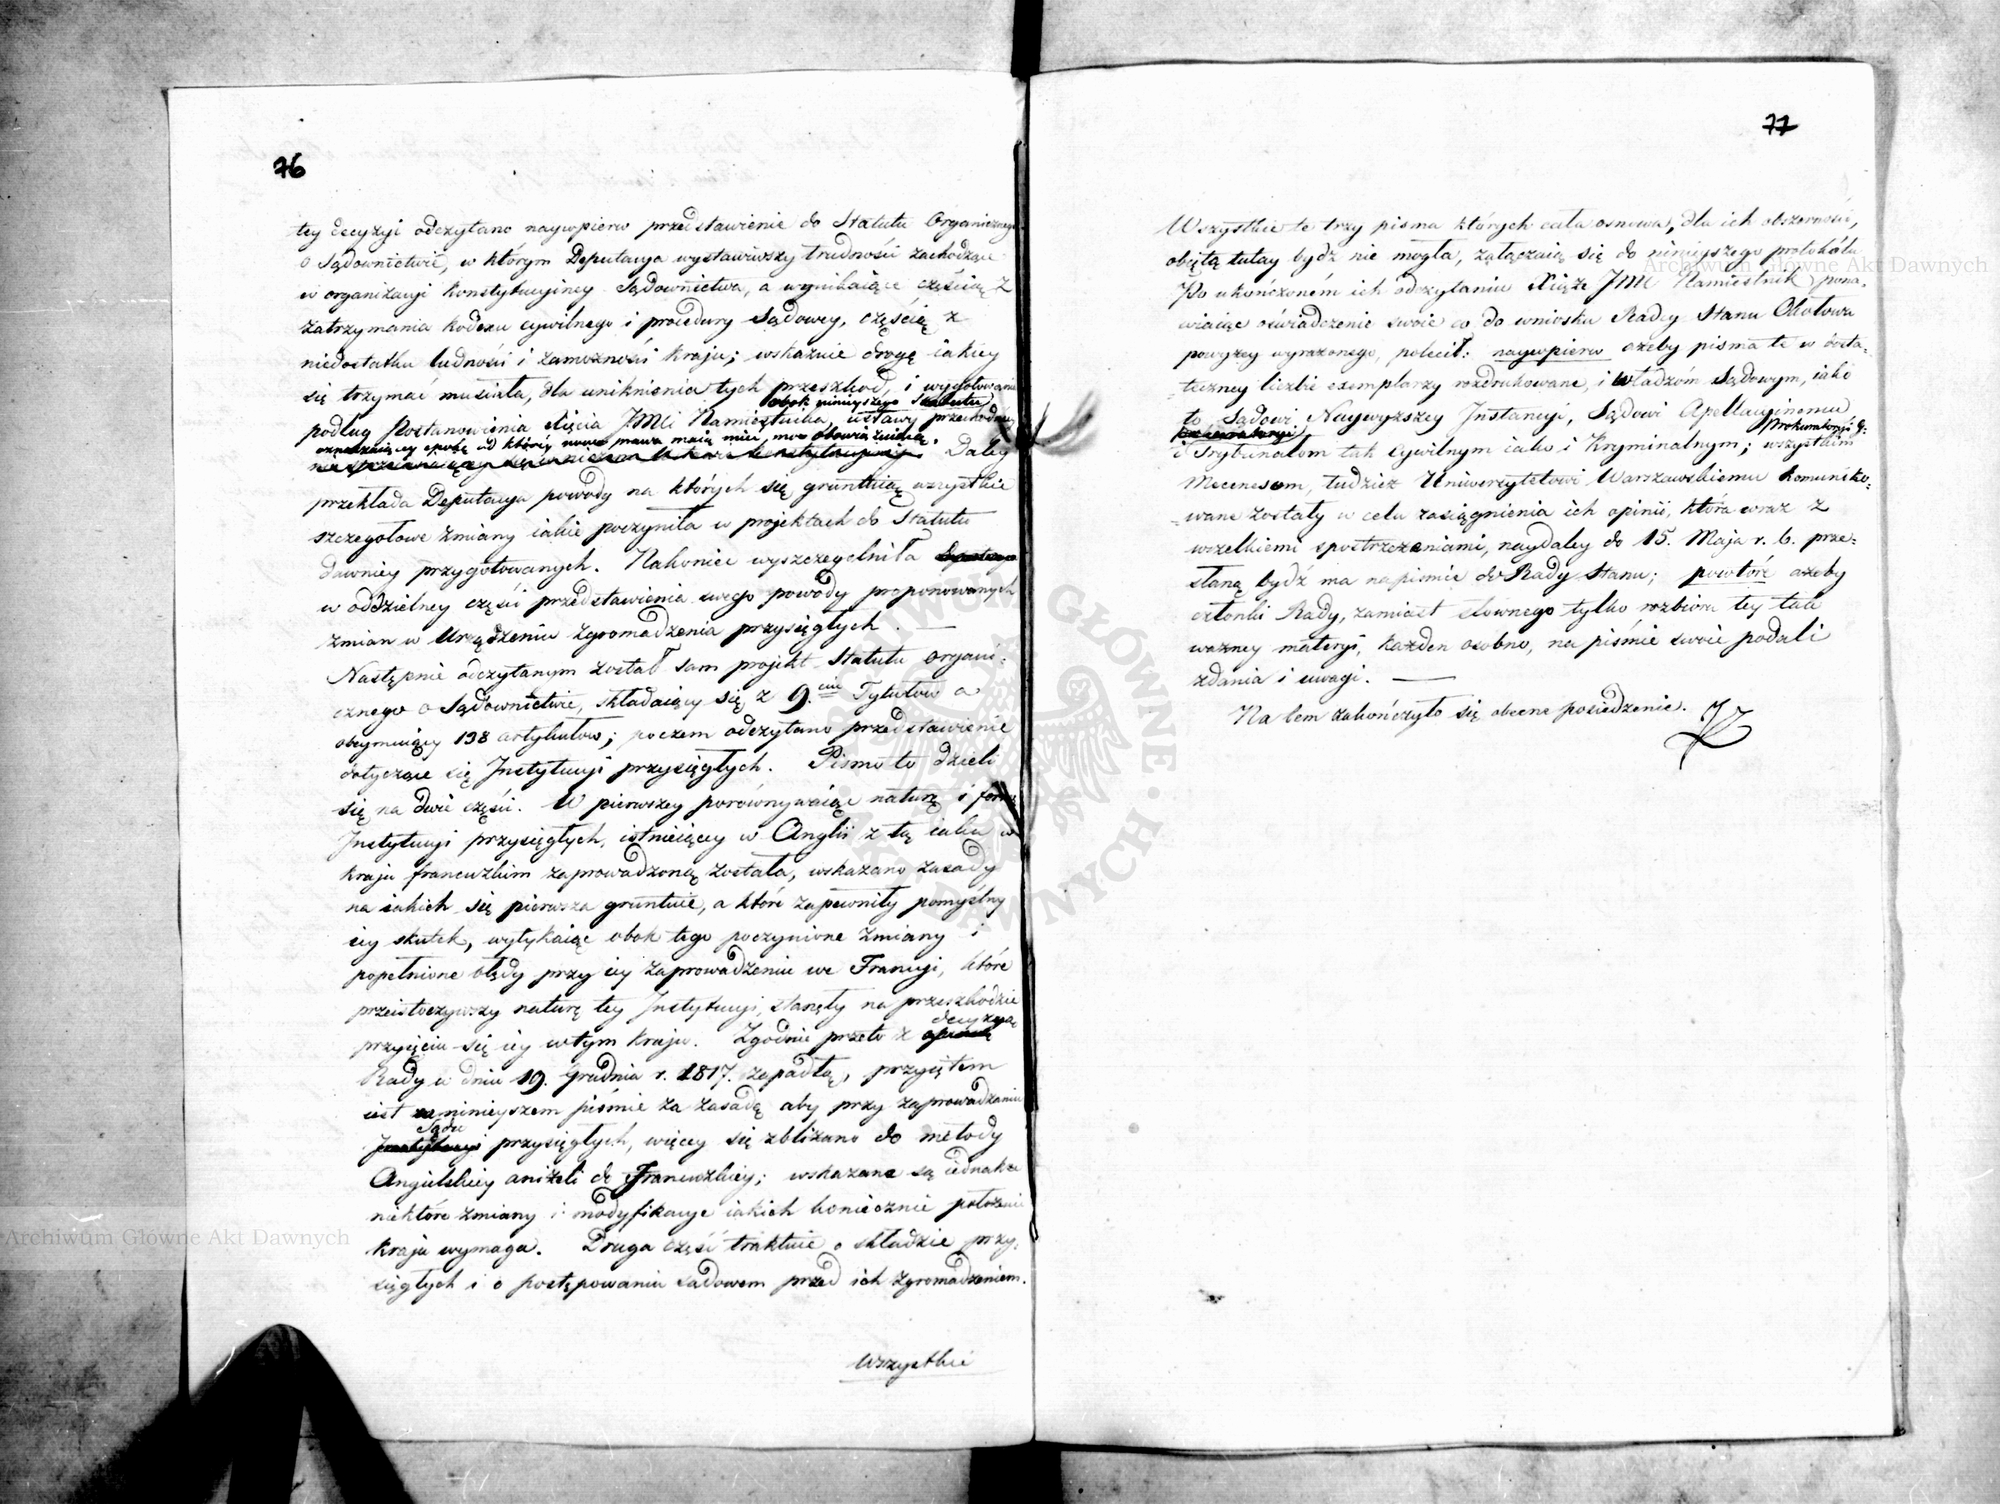 76
tey decyzyi odczytano naywpierw przedstawienie do Statutu Organicznego
o Sądownictwie, w którym Deputacya wystawiwszy trudności zachodzące
w organizacyi konstytucyiney Sądownictwa, a wynikaiące częścią z
zatrzymania kodexu cywilnego i procedury Sądowey, częścią z
niedostatku ludności i zamożności kraju; wskazuie drogę iakiey
się trzymać musiała, dla uniknienia tych przeszkod, i wygotowania
obok ninieyszego Statutu
podług Postanowienia Xięcia JMCi Namiestnika, ustawy przechodniey
oznaczaiącey epokę od którey nowe prawa maią mieć moc obowiązuiącą. Daley
przekłada Deputacya powody na których się gruntuią wszystkie
szczegołowe zmiany iakie poczyniła w projektach do Statutu
dawniey przygotowanych. Nakoniec wyszczegelniła
w oddzielney części przedstawienia swego powody proponowanych
zmian w Urządzeniu zgromadzenia przysięgłych. —
Następnie odczytanym został sam projekt Statutu organi-
cznego o Sądownictwie, składaiący się z 9.ciu Tytułów a
obeymuiący 198 artykułów; poczem odczytano przedstawienie
dotyczące się Instytucyi przysięgłych. Pismo to dzieli
się na dwie części. W pierwszey porównywaiąc naturę i formę
Instytucyi przysięgłych, istnieiącey w Anglii z tą iaka w
kraju francuzkim zaprowadzoną została, wskazano zasady
na iakich się pierwsza gruntuie, a które zapewniły pomyślny
iey skutek, wytykaiąc obok tego poczynione zmiany i
popełnione błędy przy iey zaprowadzeniu we Francyi, które
przeistoczywszy naturę tey Instytucyi, stanęły na przeszkodzie
decyzyą
przyięciu się iey w tym kraju. Zgodnie przeto z
Rady w dniu 19. Grudnia r. 1817. zapadłą, przyiętem
iest w ninieyszem piśmie za zasadę aby przy zaprowadzaniu
Sądu
Instytucyi przysięgłych, więcey się zbliżano do metody
Angielskiey aniżeli do Francuzkiey; wskazane są iednakże
niektóre zmiany i modyfikacye iakich koniecznie położenie
kraju wymaga. Druga część traktuie o składzie przy-
sięgłych i o postępowaniu sądowem przed ich zgromadzeniem.
Wszystkie
77
Wszystkie te trzy pisma których cała osnowa, dla ich obszerności,
obiętą tutay bydź nie mogła, załączaią się do ninieyszego protokółu
Po ukończoném ich odczytaniu Xiąże JMC Namiestnik pona-
wiaiąc oświadczenie swoie co do wniosku Radcy Stanu Okołowa
powyżey wyrażonego, polecił: naywpierw ażeby pisma te w dosta-
teczney liczbie exemplarzy rozdrukowane, i władzom Sądowym, iako
to Sądowi Naywyższey Instancyi, Sądowi Apellacyinemu
Prokuratoryi G:
i Trybunałom tak cywilnym iako i kryminalnym; wszystkim
Mecenasom, tudzież Uniwersytetowi Warszawskiemu komuniko-
wane zostały w celu zasiągnienia ich opinii, która wraz z
wszelkiemi spostrzeżeniami, naydaley do 15. Maja r. b. prze-
słaną bydź ma na piśmie do Rady Stanu; powtóre ażeby
członki Rady, zamiast słownego tylko rozbioru tey tak
ważney materyi, każden osobno, na piśmie swoie podali
zdania i uwagi. —
Na tem zakończyło się obecne posiedzenie.
Archiwum Główne Akt Dawnych
Archiwum Główne Akt Dawnych
ARCHIWUM GŁÓWNE AKT DAWNYCH